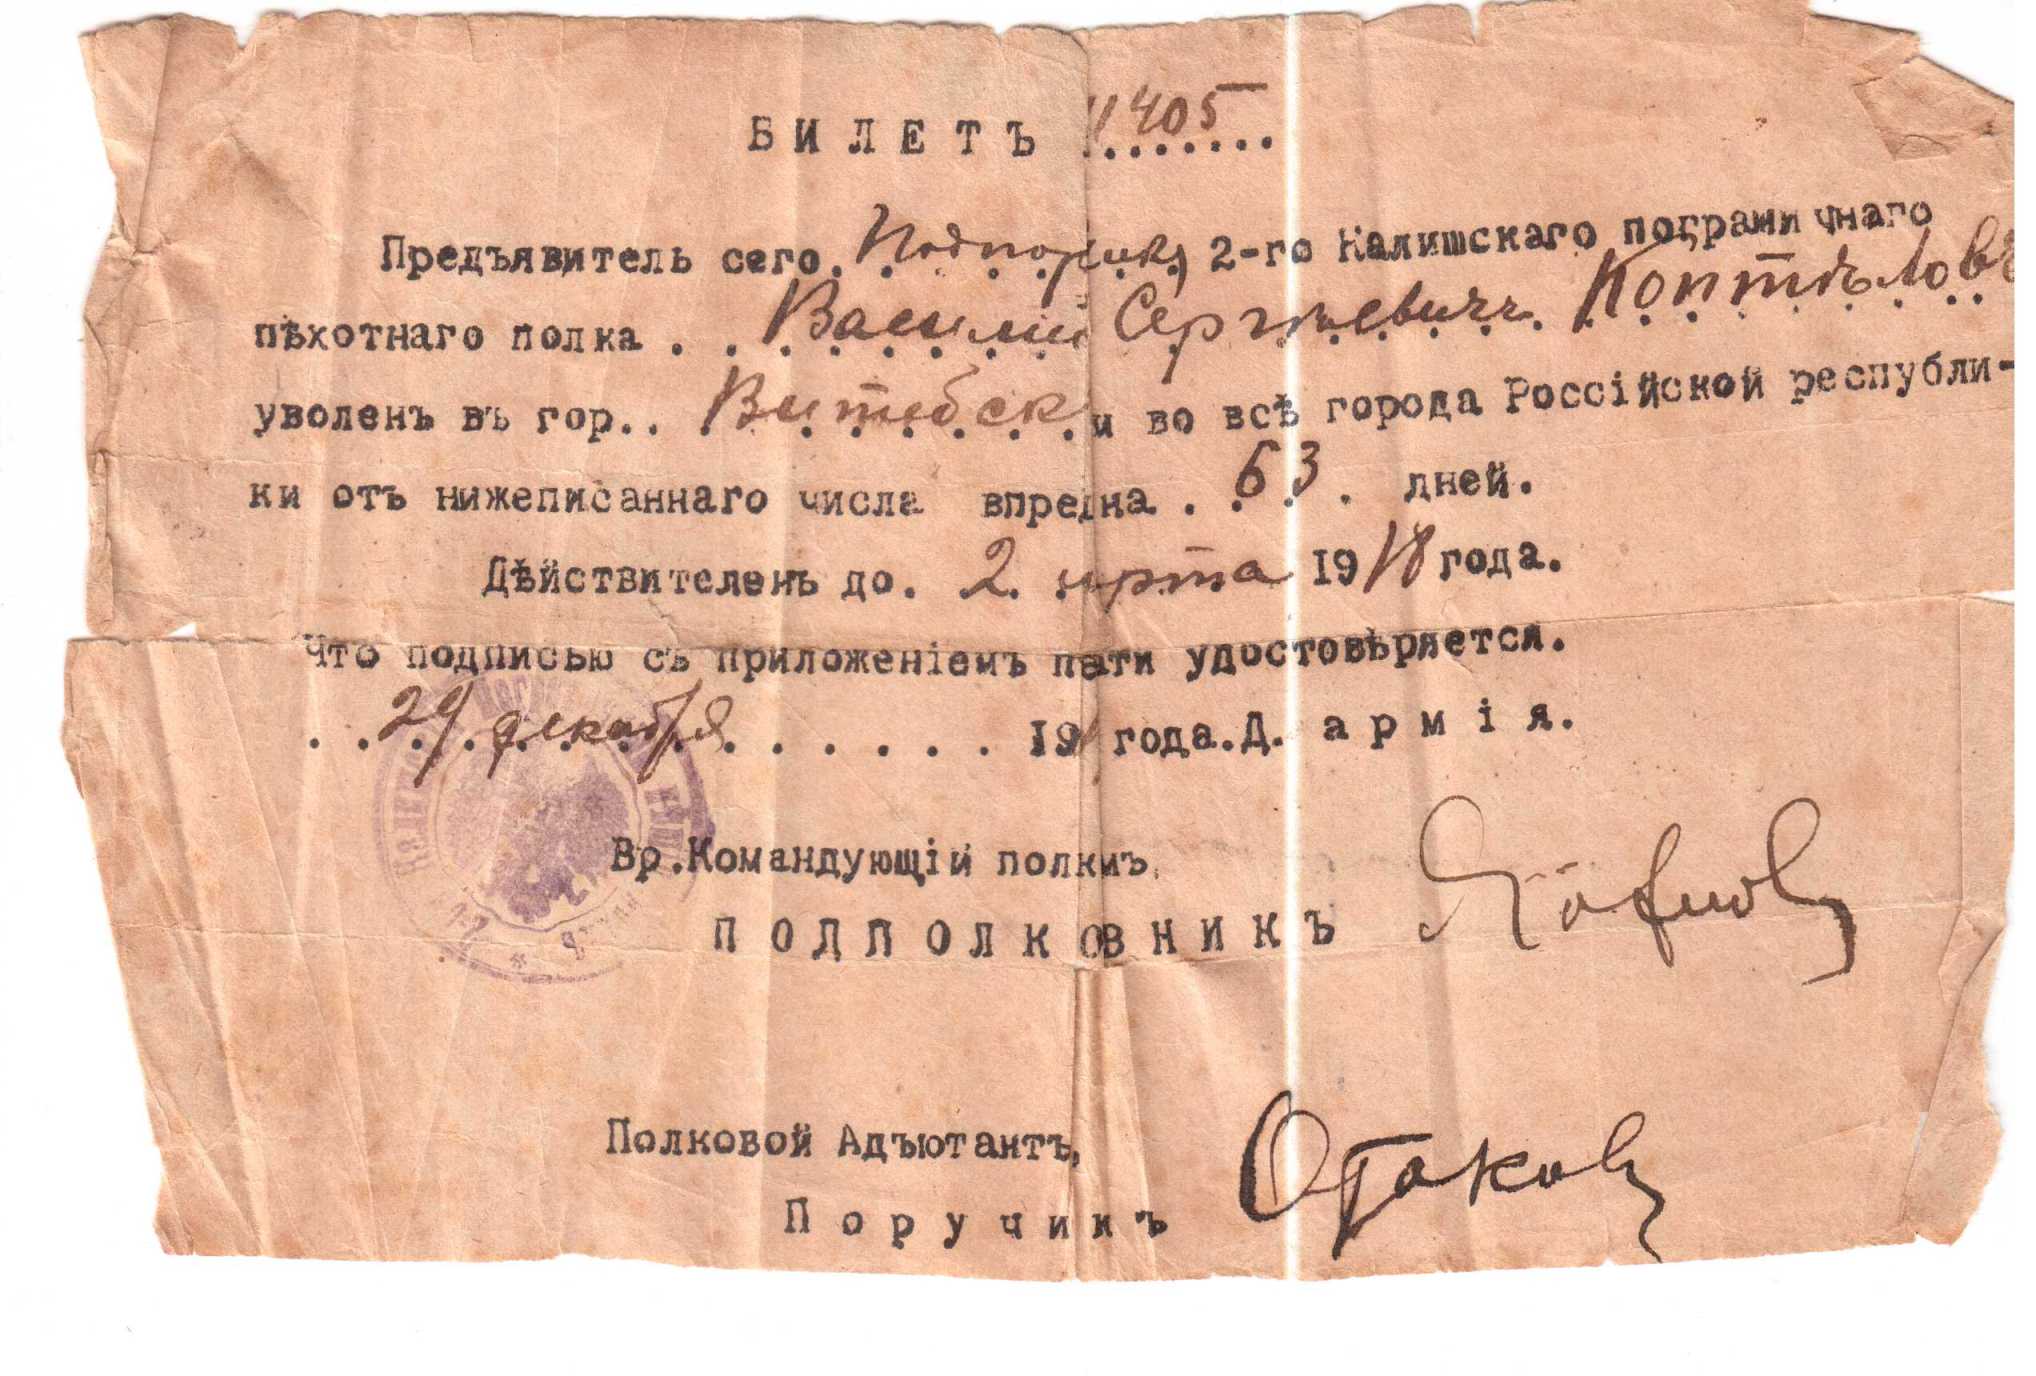 БИЛЕТЪ 1405
Предъявитель сего Подпорчик, 2-го Калишскаго пограничнаго
пѣхотнаго полка Василій Сергѣевичъ Коптѣловъ
уволенъ въ гор. Витебскъ и во всѣ города Россійской республи-
ки отъ нижеписаннаго числа впредна 63 дней.
Дѣйствителенъ до. 2 марта 1918 года.
Что подписью съ приложеніемъ пчати удостовѣряется.
29 декабря 191 года. Д. армія.
Вр. Командующій полкмъ,
ПОДПОЛКОВНИКЪ
Полковой Адъютантъ,
Поручикъ